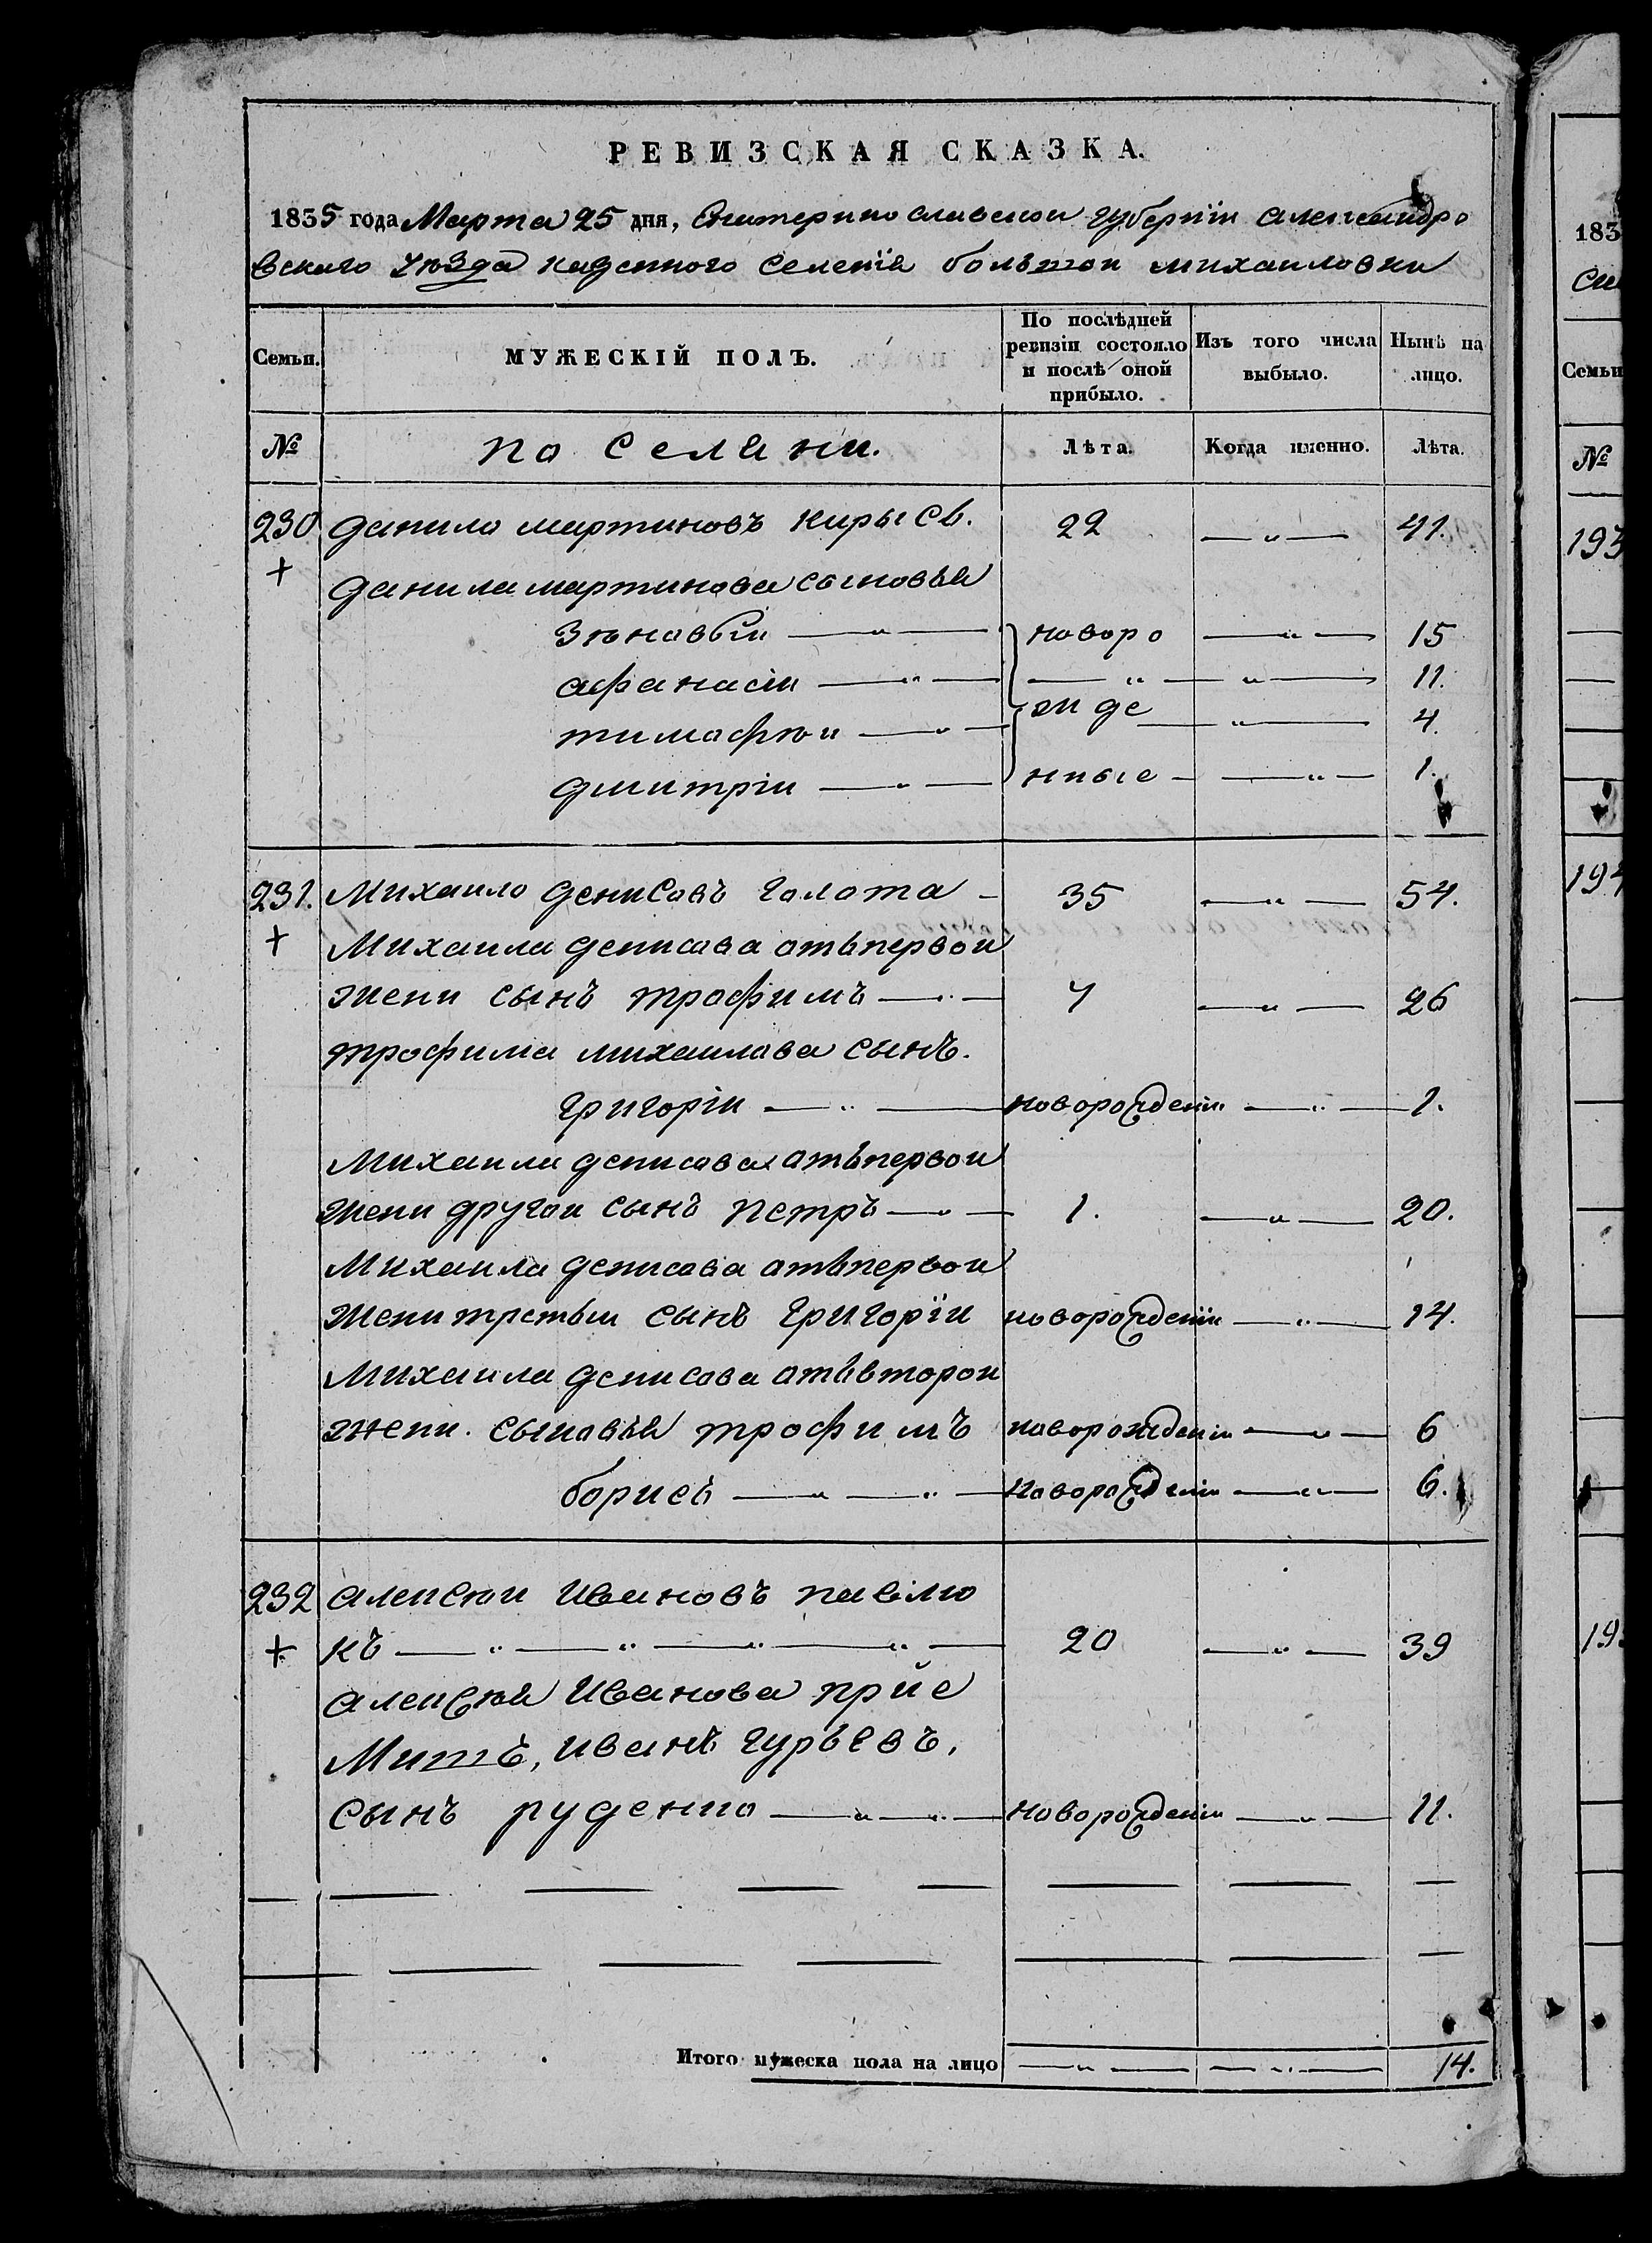 РЕВИЗСКАЯ СКАЗКА.
1835 года Марта 25 дня, Екатеринославской губерніи александро
вскаго уѣзда казенного селенія большои михаиловки
Семьи. МУЖЕСКІЙ ПОЛЪ. По послѣдней ревизіи состояло и послѣ оной прибыло. Изъ того числа выбыло. Нынѣ на лицо.
№ поселяни. Лѣта. Когда именно. Лѣта.
230 данило мартиновъ 22 — „ — 41.
+ данила мартинова сыновья
зѣновьіи — „ — новоро — „ — 15
афанасіи — „ — — „ — „ — 11.
тимофѣи — „ — жде — „ — 4.
дмитріи — „ — нные — — „ — 1.
231. Михаило денисовъ голота — 35 — „ — 54.
+ Михаила денисова отъпервои
жени сынъ трофимъ — „ — 7 — „ — 26
трофима михаилова сынъ.
григоріи — „ — новорожденіи — „ — 1.
Михаила денисова отъпервои
жени другои сынъ петръ — „ — 1. — „ — 20.
Михаила денисова отъпервои
жени третьи сынъ григоріи новорожденіи — „ — 14.
Михаила денисова отъвторои
жени. сыновья трофимъ новорожденіи — „ — 6
борисъ — „ — „ — новорожденіи — „ — 6.
232 алексѣи ивановъ павлю
+ къ — „ — „ — „ — „ — 20 — „ — 39
алексѣя иванова пріе
мишъ, иванъ гурьевъ,
сынъ руденко — „ — „ — новорожденіи — „ — 11.
Итого мужеска пола на лицо — „ — — „ — 14.
183
Семьи
№
193
194
19